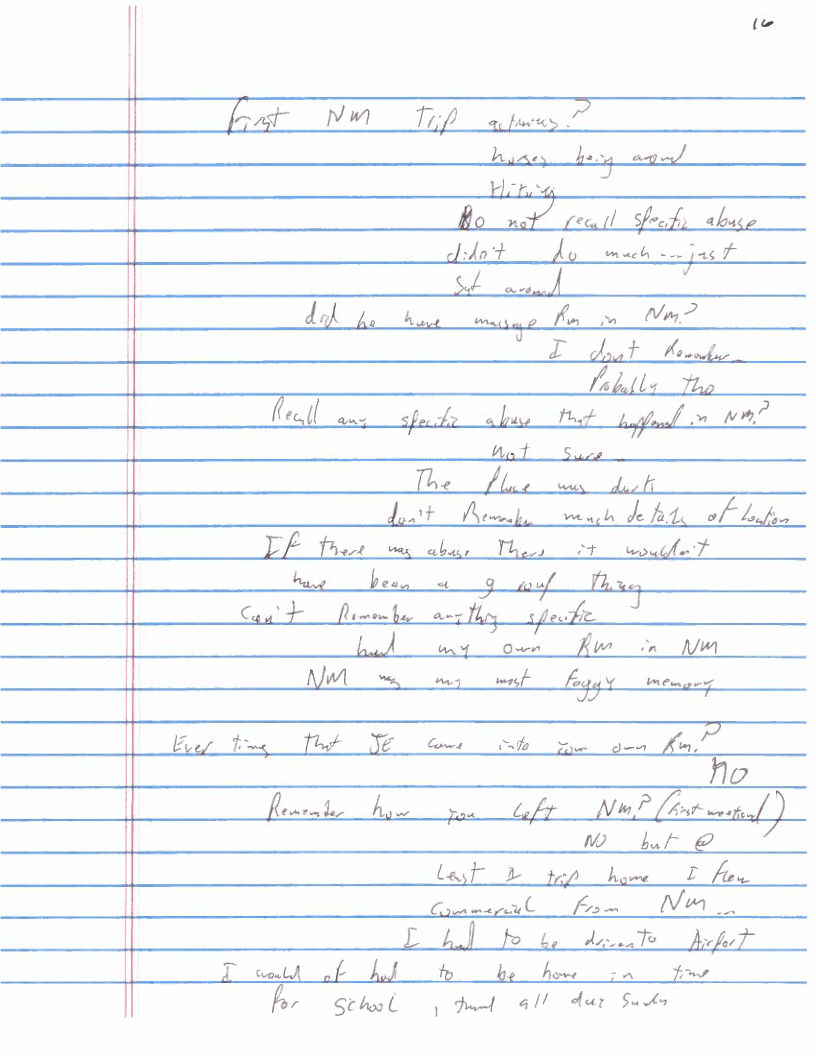 16
First NM Trip activities?
horses being around
Hiking
Do not recall specific abuse
didn't do much --- just
Sat around
did he have massage Rm in NM?
I don't Remember -
Probably tho
Recall any specific abuse that happened in NM?
not sure -
The Place was dark
don't Remember much details of Location
If there was abuse There it wouldn't
have been a group thing
Can't Remember anything specific
had my own Rm in NM
NM was my most foggy memory
Ever time that JE came into your own Rm?
NO
Remember how you Left NM? (first weekend)
NO but @
Least 1 trip home I flew
Commercial From NM --
I had to be driven To Airport
I would of had to be home in time
for School, travel all day Sunday